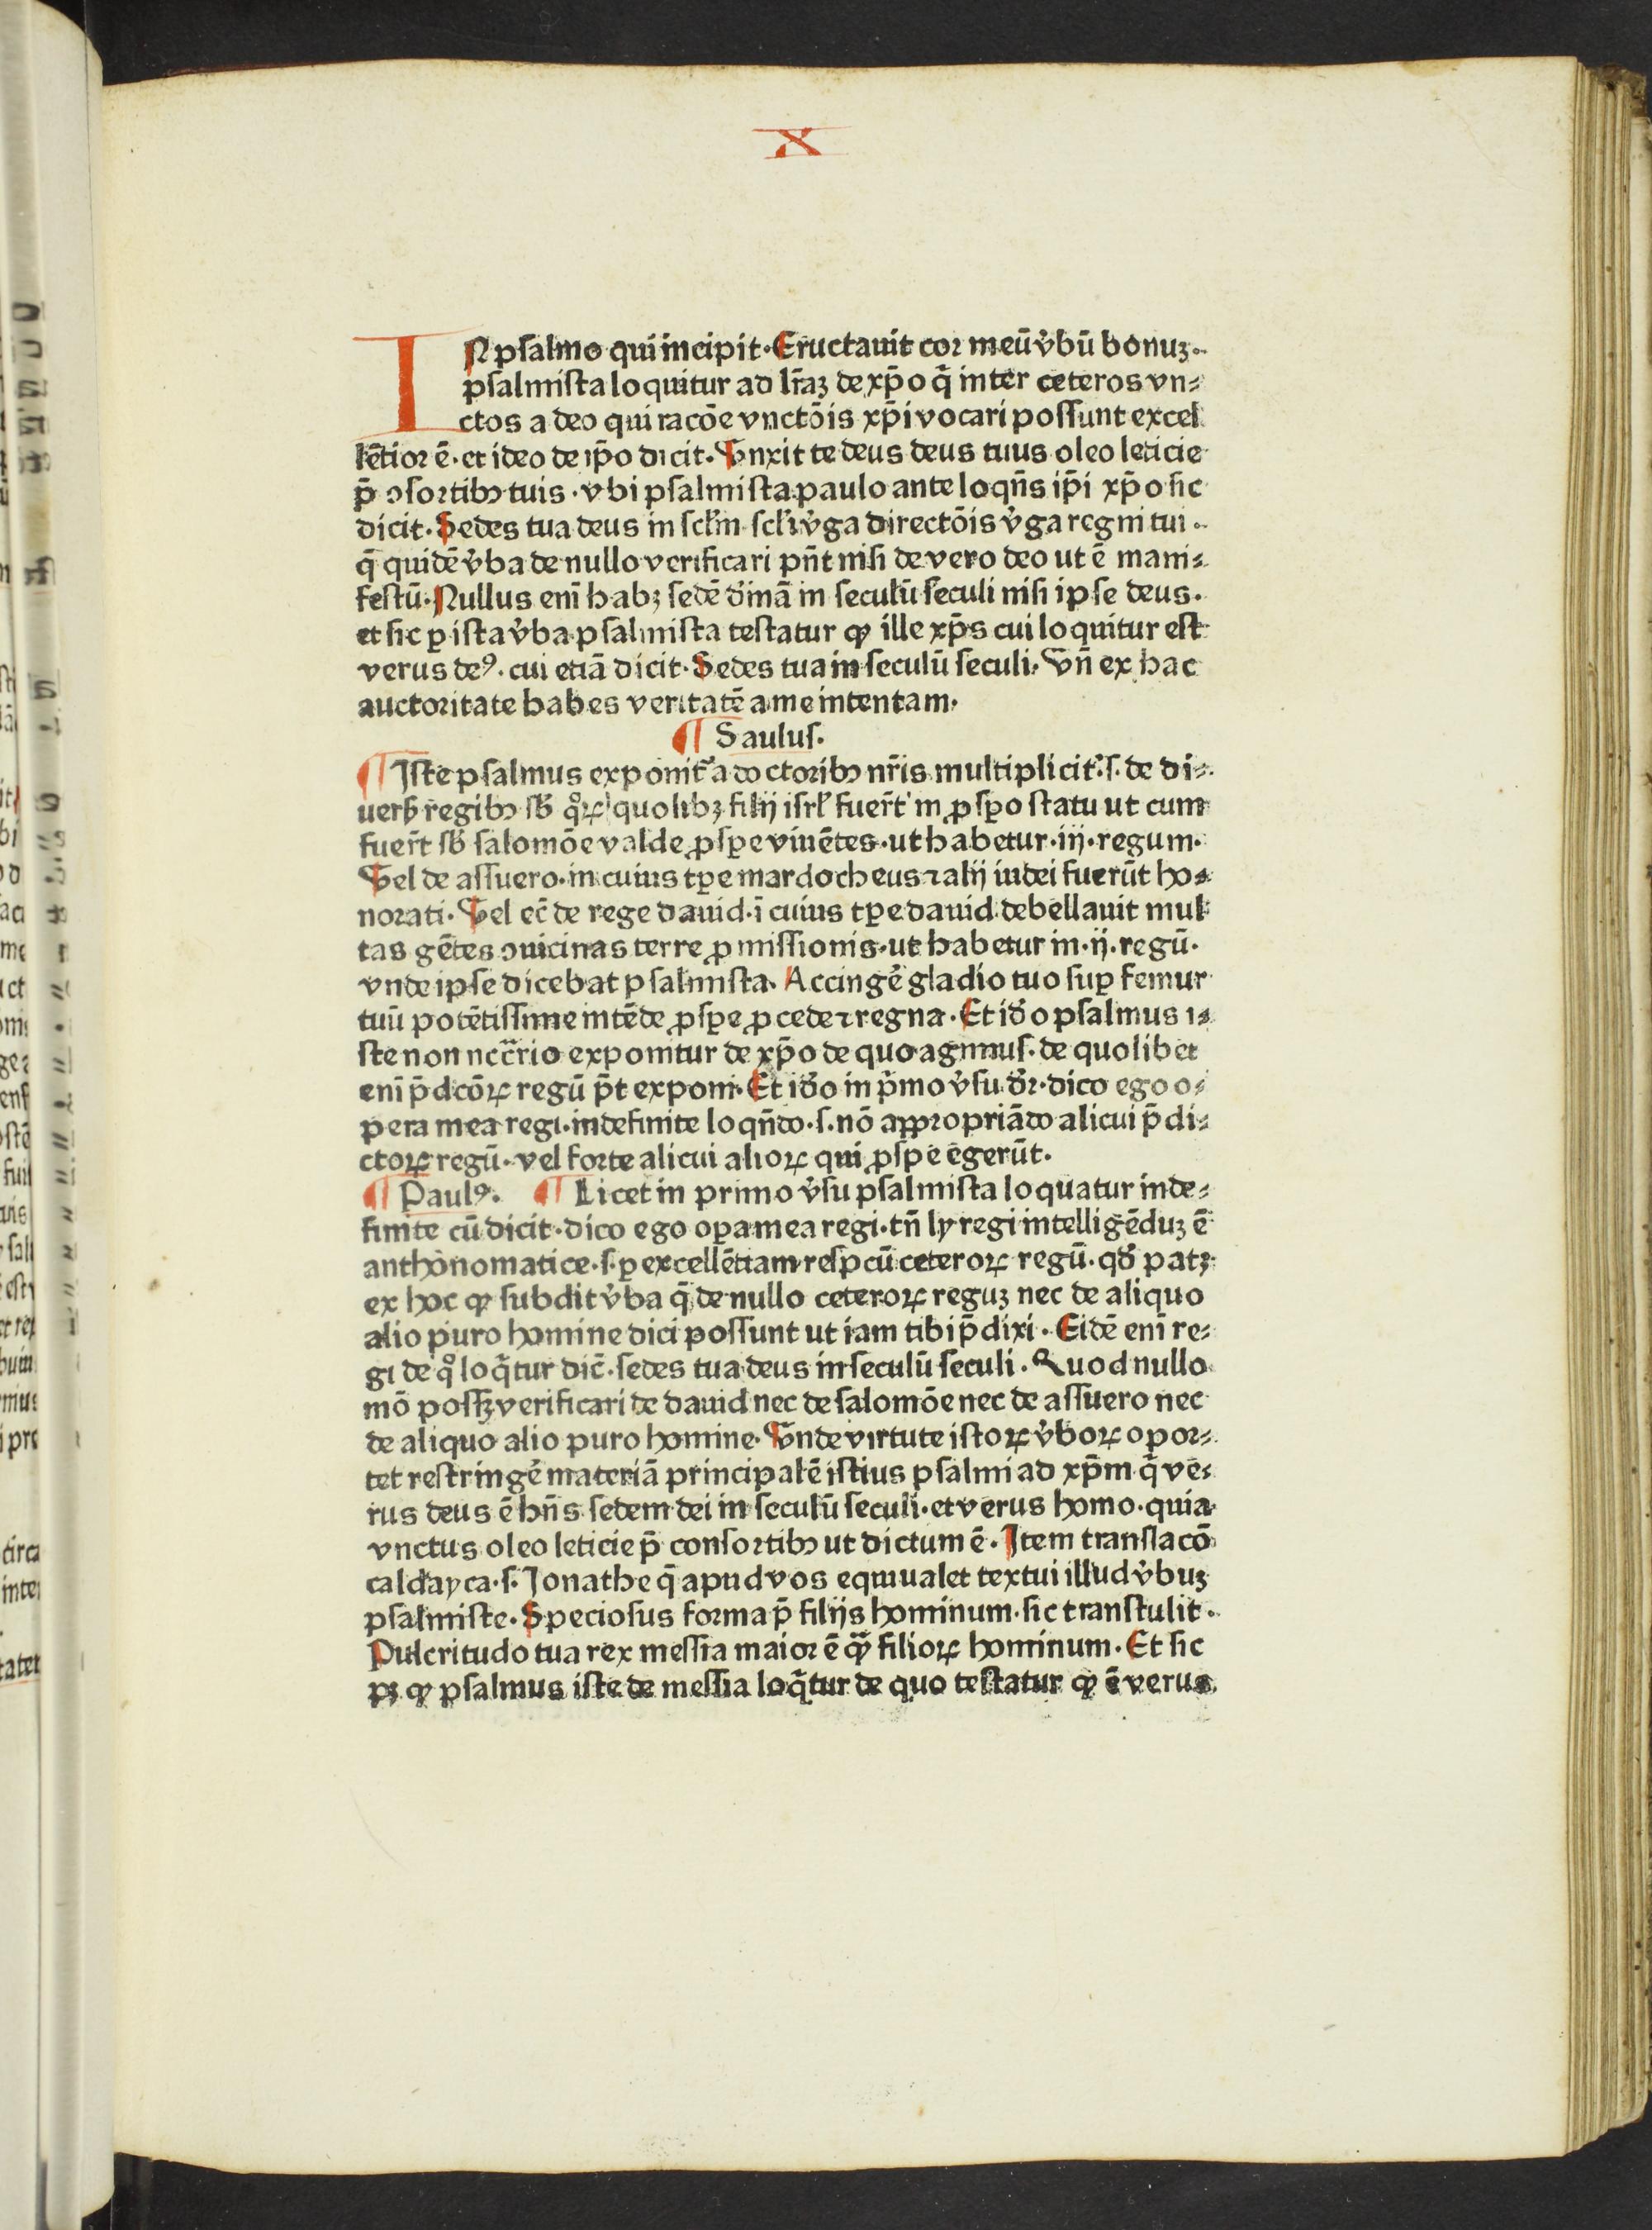 X
IN psalmo qui incipit·Eructauit cor meū v̄bū bonuꝫ·
psalmista loquitur ad lr̄aꝫ de xp̄o q̄ inter ceteros vn⸗
ctos a deo qui racōe vnctōis xp̄i vocari possunt excel
lētior ē·et ideo de ip̄o dicit·Vnxit te deus deus tuus oleo leticie
p̄ ↄsortibꝰ tuis·vbi psalmista paulo ante loqn̄s ip̄i xp̄o sic
dicit·Sedes tua deus in scl̄m scl̄i v̄ga directōis v̄ga regni tui·
q̄ quidē v̄ba de nullo verificari pn̄t nisi de vero deo ut ē mani⸗
festū·Nullus enī habꝫ sedē d̄inā in seculū seculi nisi ipse deus·
et sic ꝑ ista v̄ba psalmista testatur ꝙ ille xp̄s cui loquitur est
verus deꝰ·cui etiā dicit·Sedes tua in seculū seculi·Vn̄ ex hac
auctoritate habes veritatē a me intentam·
¶ Saulus·
¶ Iste psalmus exponit᷑ a doctoribꝰ nr̄is multiplicit᷑·s·de di⸗
uers̄ regibꝰ sb̄ qͦꝝ quolibꝫ filij isrl̄ fuer̄t in ꝓspo statu ut cum
fuer̄t sb̄ salomōe valde ꝓspe viuētes·ut habetur·iij·regum·
Vel de assuero·in cuius tꝑe mardocheus ⁊ alij iudei fuerūt ho⸗
norati·Vel ec̄ de rege dauid·ī cuius tꝑe dauid debellauit mul
tas gētes ↄuicinas terre ꝓmissionis·ut habetur in·ij·regū·
vnde ipse dicebat psalmista·Accingē gladio tuo suꝑ femur
tuū potētissime intēde ꝓspe ꝓcede ⁊ regna·Et id̄o psalmus i⸗
ste non ncc̄rio exponitur de xp̄o de quo agimus·de quolibet
enī p̄dcōꝝ regū p̄t exponi·Et id̄o in p̄mo v̄su d̄r·dico ego o⸗
pera mea regi·indefinite loqn̄do·s·nō appropriādo alicui p̄di⸗
ctoꝝ regū·vel forte alicui alioꝝ qui ꝓspe egerūt·
¶ Paulꝰ· ¶ Licet in primo v̄su psalmista loquatur inde⸗
finite cū dicit·dico ego oꝑa mea regi·tn̄ ly regi intelligēduꝫ ē
anthonomatice·s·ꝑ excellētiam respcū ceteroꝝ regū·qd̄ patꝫ
ex hoc ꝙ subdit v̄ba q̄ de nullo ceteroꝝ reguꝫ nec de aliquo
alio puro homine dici possunt ut iam tibi p̄dixi·Eidē enī re⸗
gi de qͦ loq̄tur dic̄·sedes tua deus in seculū seculi·Quod nullo
mō possꝫ verificari de dauid nec de salomōe nec de assuero nec
de aliquo alio puro homine·Vnde virtute istoꝝ v̄boꝝ opor⸗
tet restringē materiā principalē istius psalmi ad xp̄m q̄ ve⸗
rus deus ē hn̄s sedem dei in seculū seculi·et verus homo·quia
vnctus oleo leticie p̄ consortibꝰ ut dictum ē·Item translacō
caldayca·s·Jonathe q̄ apud vos equiualet textui illud v̄buꝫ
psalmiste·Speciosus forma p̄ filijs hominum·sic transtulit·
Pulcritudo tua rex messia maior ē qᷓ filioꝝ hominum·Et sic
pꝫ ꝙ psalmus iste de messia loq̄tur de quo testatur ꝙ ē verus